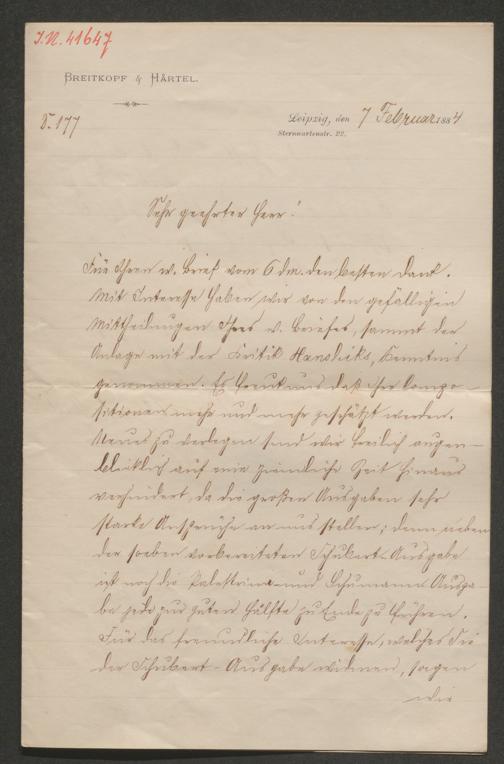 I.N. 41647
BREITKOPF & HÄRTEL.
V. 177
Leipzig, den 7 Februar 1884
Sternwartenstr. 22.
Sehr geehrter Herr!
Für Ihren w. Brief vom 6 dm. den besten Dank.
Mit Interesse haben wir von den gefälligen
Mittheilungen Ihres w. Briefes, sammt der
Anlage mit der Kritik Hanslicks, Kenntnis
genommen. Es freut uns daß Ihre Compo-
sitionen mehr und mehr geschätzt werden.
Neues zu verlegen sind wir freilich augen-
blicklich auf eine ziemliche Zeit hinaus
verhindert, da die großen Ausgaben sehr
starke Ansprüche an uns stellen; denn neben
der soeben vorbereiteten Schubert-Ausgabe
ist noch die Palestrina- und Schumann-Ausga-
be je zur guten Hälfte zu Ende zu führen.
Für das freundliche Interesse, welches Sie
der Schubert-Ausgabe widmen, sagen
wir